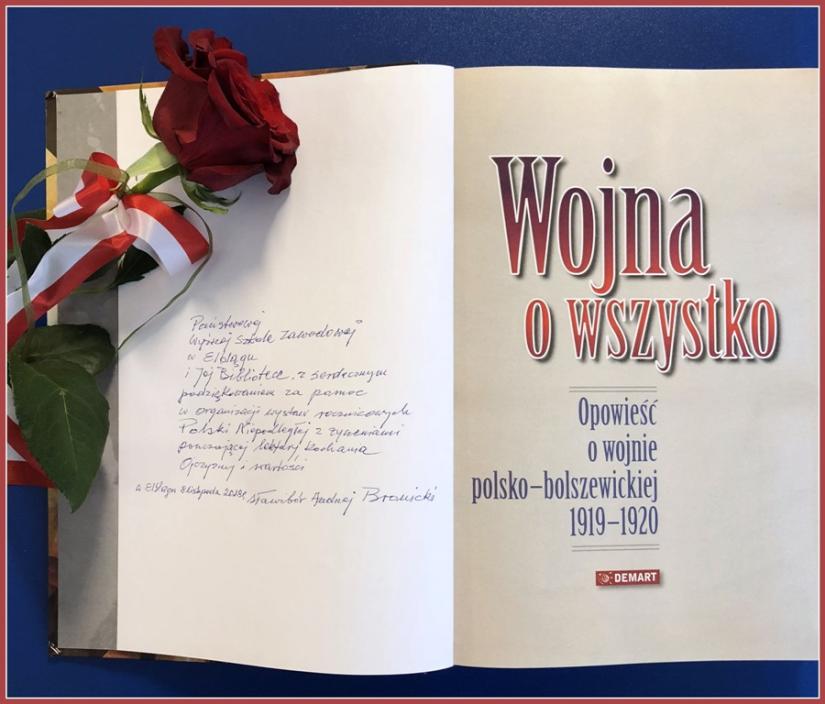 Państwowej
Wyższej Szkole Zawodowej
w Elblągu
i Jej Bibliotece, z serdecznym
podziękowaniem za pomoc
w organizacji wystaw rocznicowych
Polski Niepodległej z życzeniami
pouczającej lektury Kochania
Ojczyzny i wartości
w Elblągu listopada 2018r. Sławobór Andrzej Branicki
Wojna
o wszystko
Opowieść
o wojnie
polsko–bolszewickiej
1919–1920
DEMART